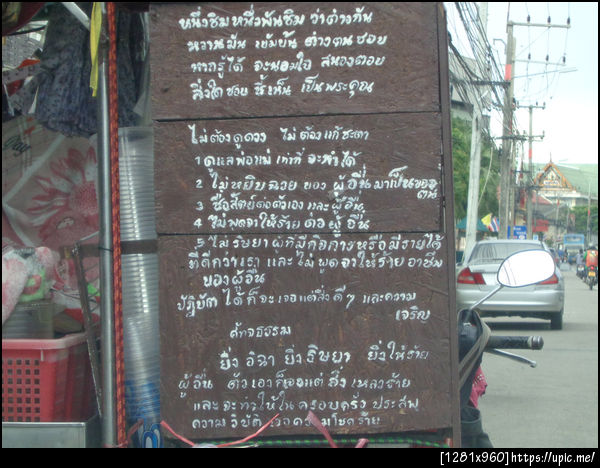 หนึ่งชิม หนึ่งพันชิม ว่าต่างกัน
หวานมัน เข้มข้น ต่างตนชอบ
หากรู้ได้ จะน้อมใจ สนองตอบ
สิ่งใดชอบ ชี้เห็น เป็นพระคุณ
ไม่ต้องดูดวง ไม่ต้องแก้ชะตา
1 ดูแลพ่อแม่ เท่าที่จะทำได้
2 ไม่หยิบฉวย ของ ผู้อื่นมาเป็นของ
ตน
3 ซื่อสัตย์ต่อตัวเอง และผู้อื่น
4 ไม่พูดจาให้ร้าย ต่อ ผู้อื่น
5 ไม่ริษยา ผู้ที่มีกิจการหรือมีรายได้
ที่ดีกว่าเรา และ ไม่ พูดจาให้ร้าย อาชีพ
ของผู้อื่น
ปฏิบัติ ได้ก็จะ เจอแต่สิ่ง ดีๆ และความ
เจริญ
สัทจธรรม
ยิ่ง อิจฉา ยิ่งริษยา ยิ่งให้ร้าย
ผู้อื่น ตัวเองก็เจอแต่ สิ่ง เลวร้าย
และจะทำให้ใน ครอบครัว ประสพ
ความวิบัติ เจอความโชคร้าย
[1281x960]https://upic.me/